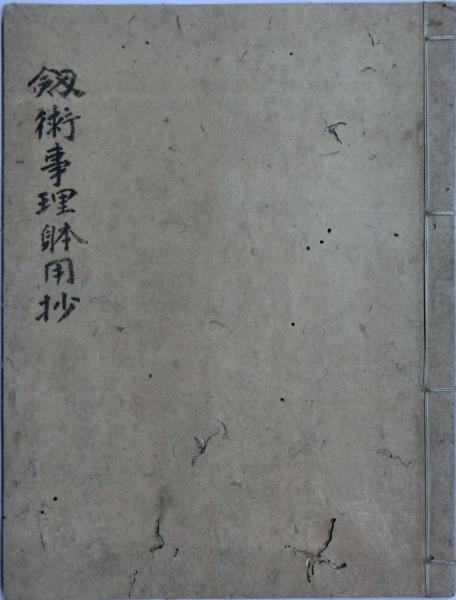 劔術事理躰用抄